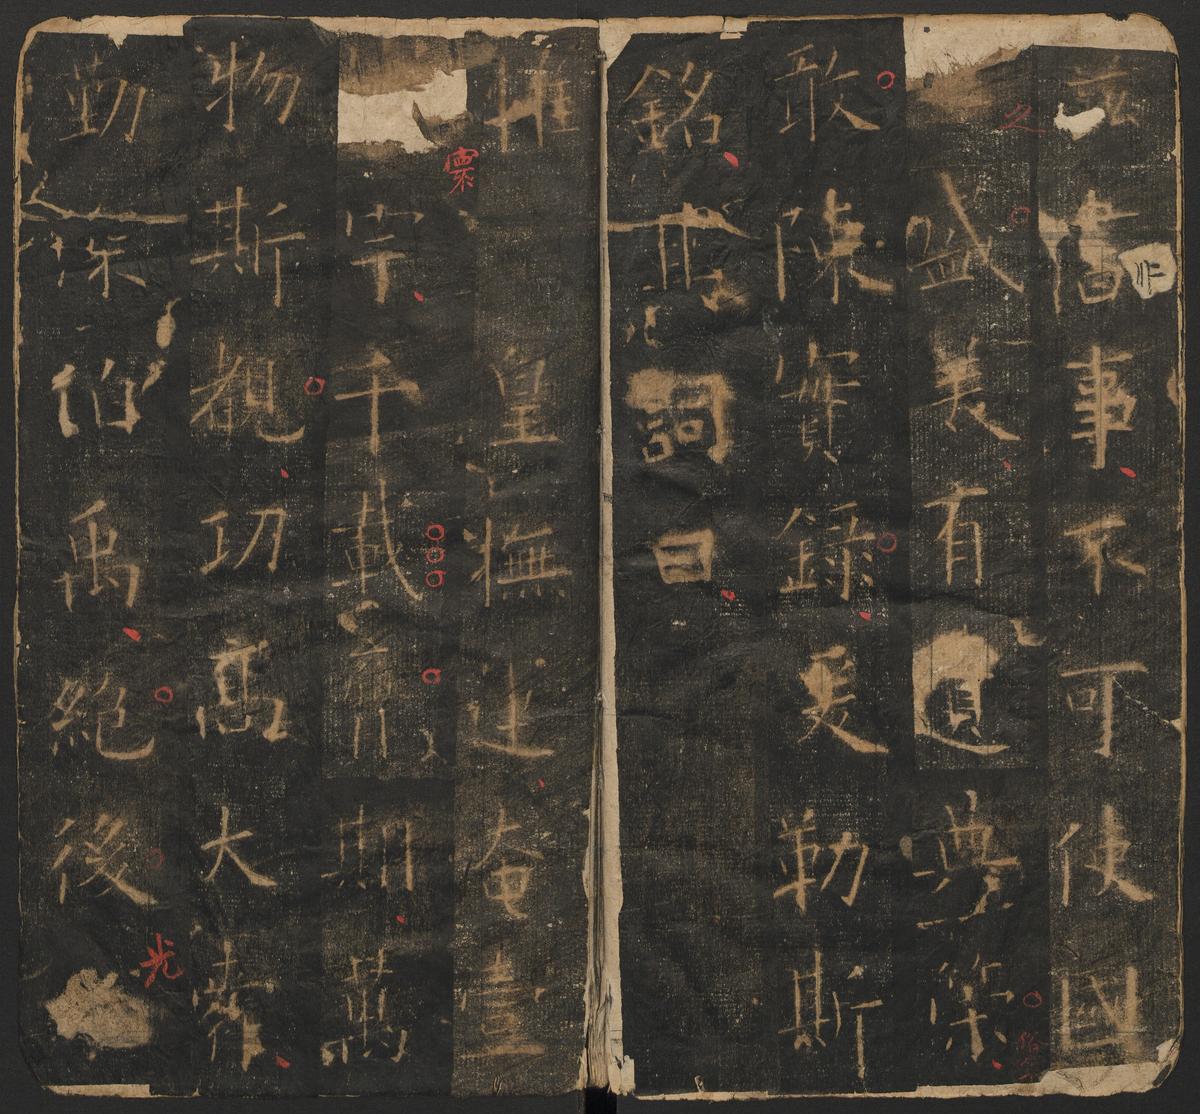 茲書事不可使國
之盛美有遺典策
敢陳實錄爰勒斯
銘其詞曰
惟皇撫運奄壹
寰宇千載膺期萬
物斯覩功高大舜
勤深伯禹絕後光